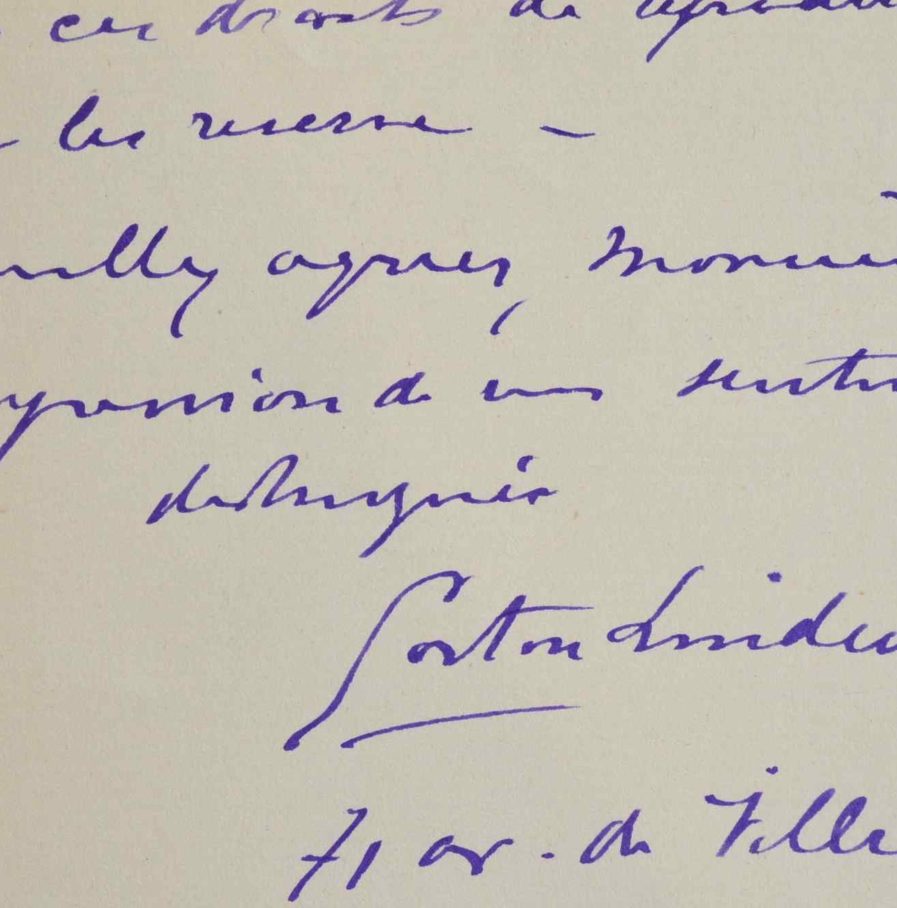 ces droits de reprodu
les reserve –
agréer, Monsie
expression de mes sentim
distingués
Gaston Linden
71 av. de Ville